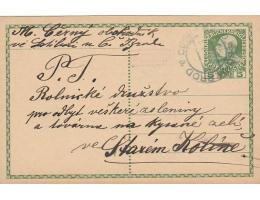 M. Černý obchodník
ve Lhotě u Č. Brodu
P. T.
Rolnické družstvo
pro odbyt veškeré zeleniny
a továrna na kysané zelí,
ve
Starém Kolíně
BROD
5